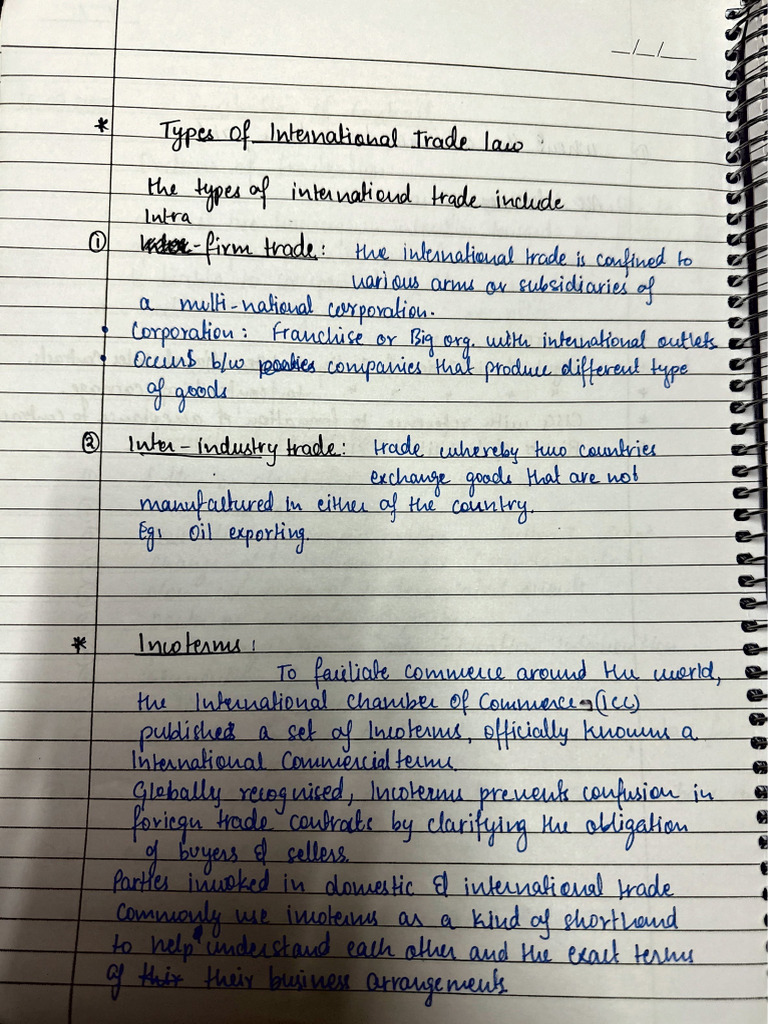 _/_/__
* Types of International Trade law :
the types of internationd trade include
Intra
① -firm trade: the international trade is confined to
various arms or subsidiaries of
a multi-national corporation.
• Corporation: Franchise or Big org. with international outlets
• Occurs b/w companies that produce different type
of goods
② Inter-industry trade: trade whereby two countries
exchange goods that are not
manufactured in either of the country.
Eg: Oil exporting.
* Incoterms:
To faciliate commerce around the world,
the International Chamber of Commerce (ICC)
published a set of Incoterms, officially known a
International Commercial terms
Globally recognised, Incoterms prevents confusion in
foriegn trade contracts by clarifying the obligation
of buyers & sellers.
Parties invoked in domestic & international trade
commonly use incoterms as a kind of shorthand
to help understand each other and the exact terms
of their business arrangements